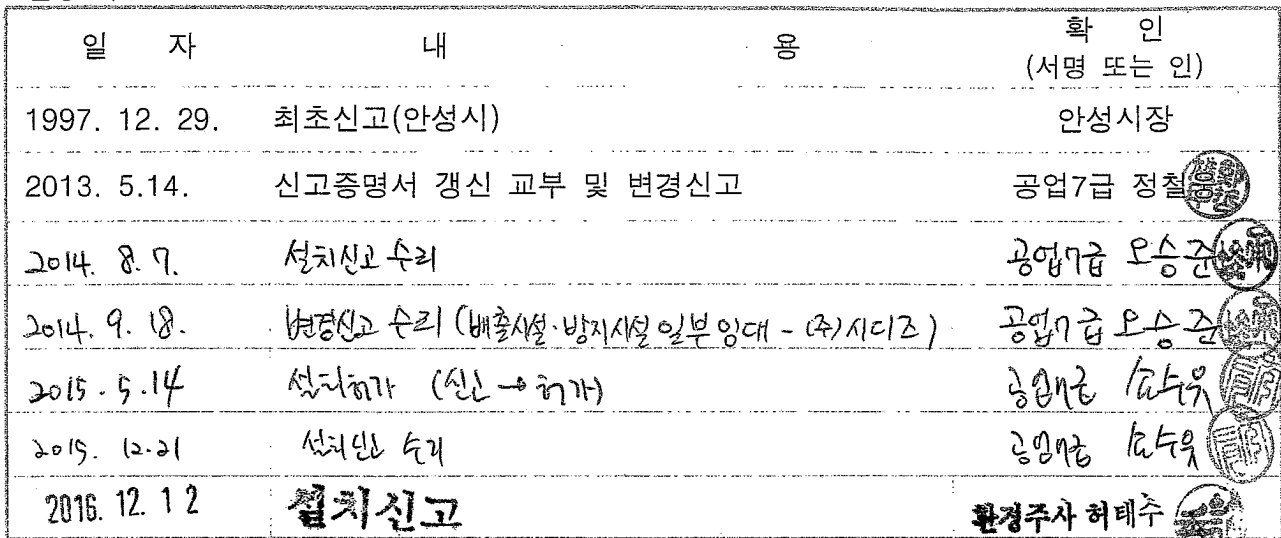 일 자 내 용 확 인
(서명 또는 인)
1997. 12. 29. 최초신고(안성시) 안성시장
2013. 5.14. 신고증명서 갱신 교부 및 변경신고 공업7급 정철
2014. 8. 7. 설치신고 수리 공업7급 오승준
2014. 9. 18. 변경신고 수리 (배출시설·방지시설 일부 임대 - (주)시디즈)  공업7급 오승준
2015. 5. 14 설치허가 (신고 → 허가) 공업7급
2015. 12. 21 설치신고 수리 공업7급
2016. 12. 12 설치신고 환경주사 허태수